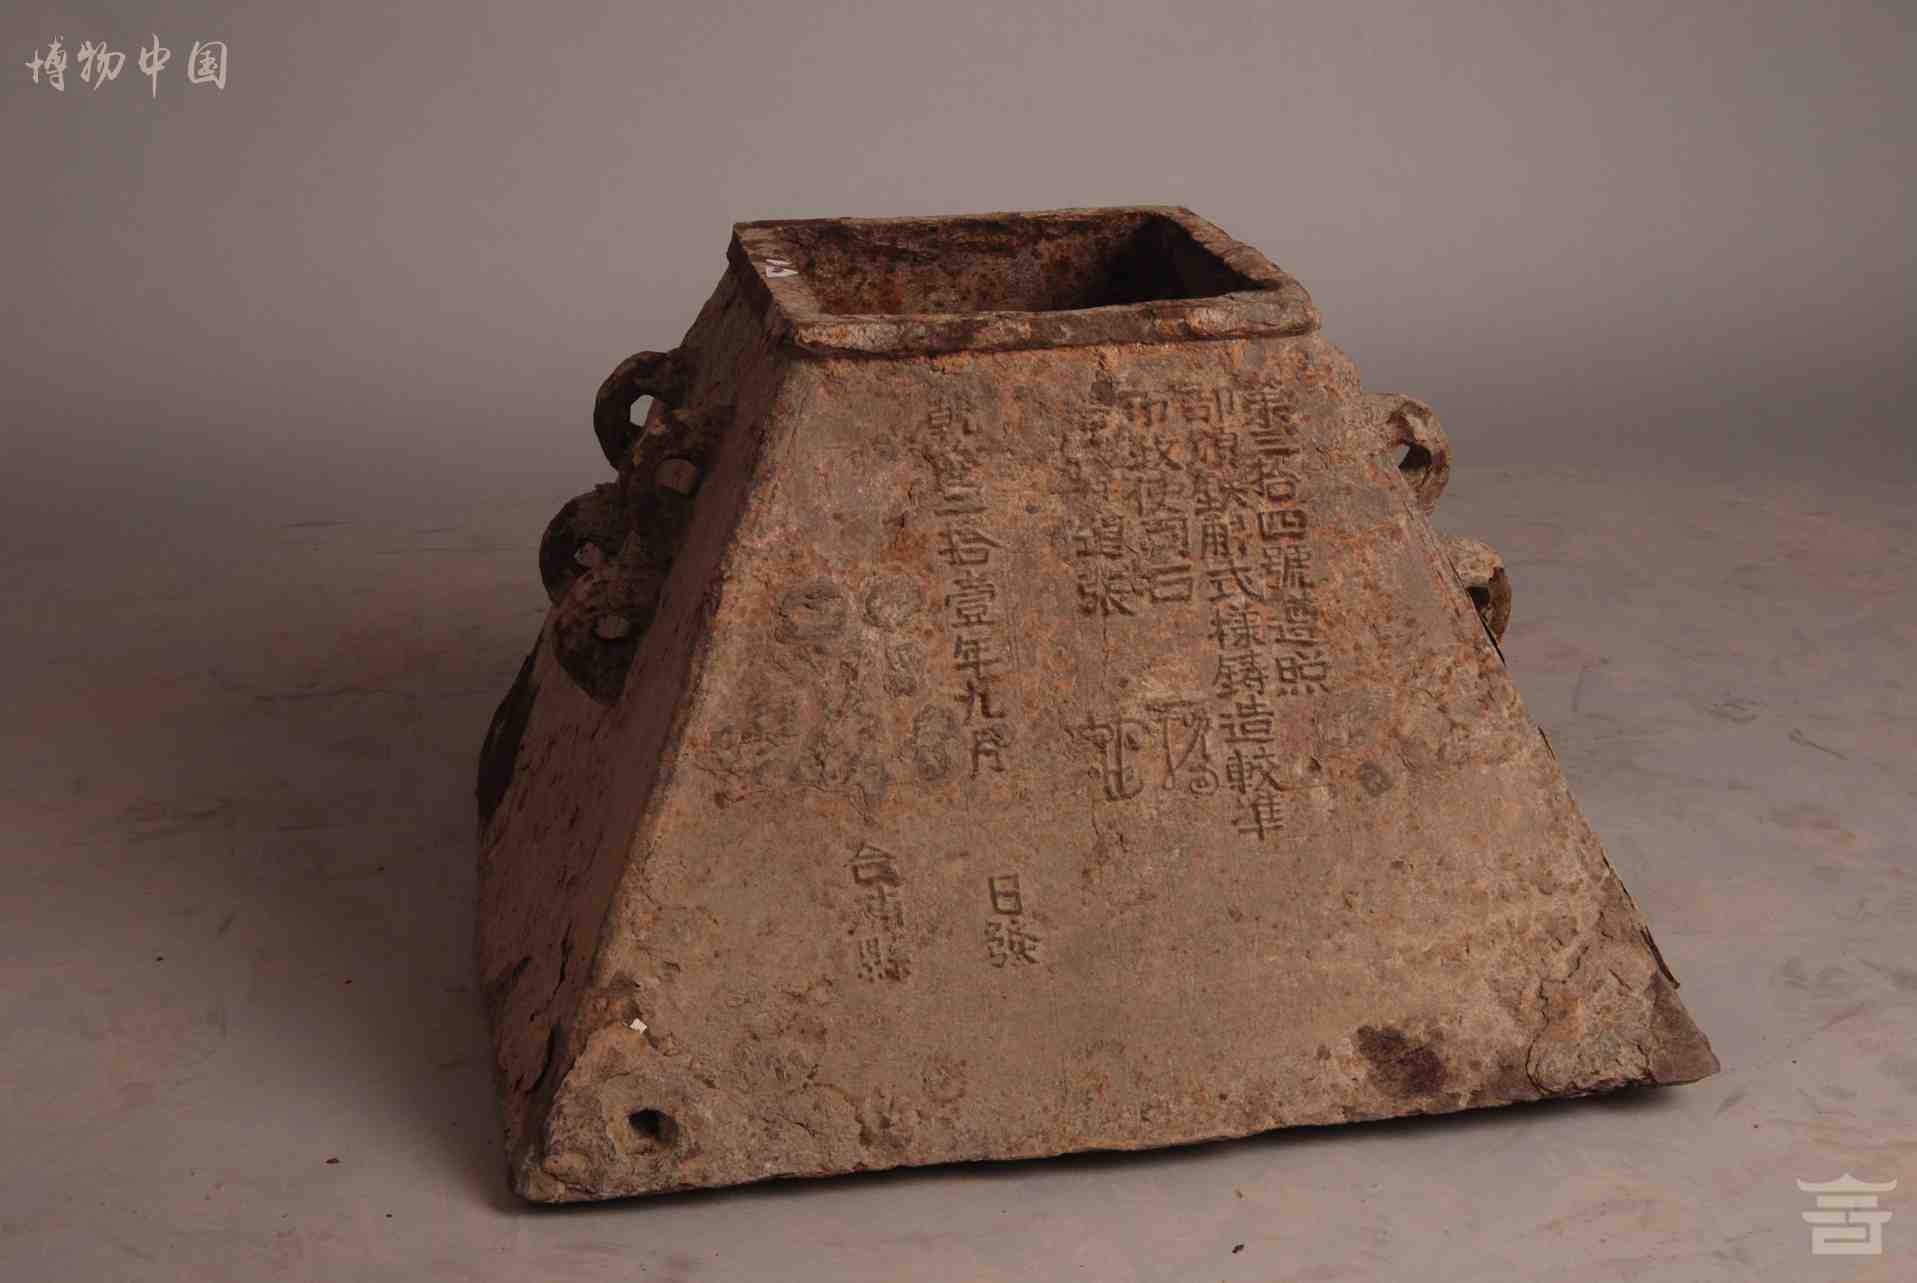 博物中国
第三拾四號遵照
部頒鉄斛式樣鑄造較準
布政使
道張
乾隆二拾壹年九月 日發
縣